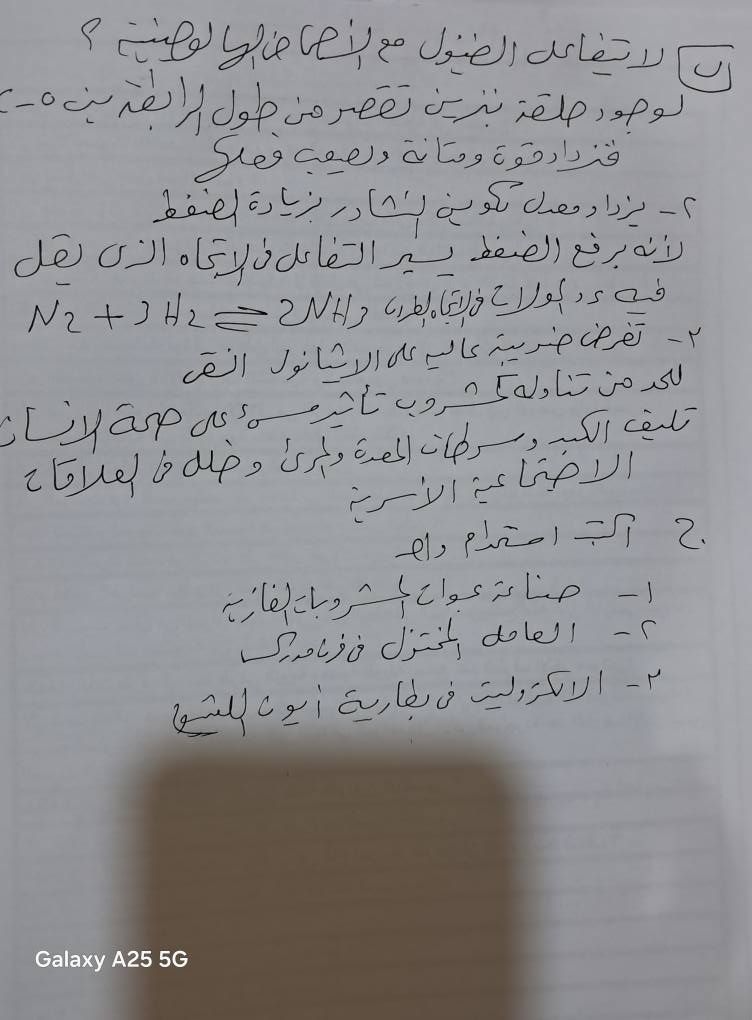 ب لا يتفاعل الفينول مع الأحماض الهالوجينية ؟
لوجود حلقة بنزين تقصر من طول الرابطة بين C-O
فتزداد قوة ومتانة ويصعب فصلها
٢- يزداد معدل تكوين النشادر بزيادة الضغط
لأنه برفع الضغط يسير التفاعل في الاتجاه الذى يقل
فيه عدد المولات في الاتجاه الطردى N2 + 3H2 ⇌ 2NH3
٣- تفرض ضريبة عالية على الايثانول النقى
للحد من تناوله كمشروب تأثير مسئ على صحة الانسان
تليف الكبد وسرطان المعدة والمرئ وخلل فى العلاقات
الاجتماعية الأسرية
ج. اكتب استخدام واحد
١- صناعة عبوات المشروبات الغازية
٢- العامل المختزل فى فرن مدركس
٣- الالكتروليت فى بطارية أيون الليثيوم
Galaxy A25 5G